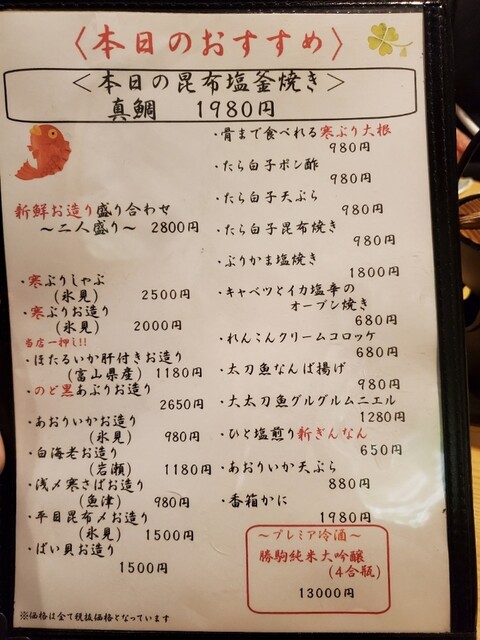 〈本日のおすすめ〉
＜本日の昆布塩釜焼き＞
真鯛　1980円
新鮮お造り盛り合わせ
～二人盛り～　2800円
・寒ぶりしゃぶ
（氷見）　2500円
・寒ぶりお造り
（氷見）　2000円
当店一押し!!
・ほたるいか肝付きお造り
（富山県産）　1180円
・のど黒あぶりお造り
2650円
・あおりいかお造り
（氷見）　980円
・白海老お造り
（岩瀬）　1180円
・浅〆寒さばお造り
（魚津）　980円
・平目昆布〆お造り
（氷見）　1500円
・ばい貝お造り
1500円
※価格は全て税抜価格となっています
・骨まで食べれる寒ぶり大根
980円
・たら白子ポン酢
980円
・たら白子天ぷら
980円
・たら白子昆布焼き
980円
・ぶりかま塩焼き
1800円
・キャベツとイカ塩辛の
オーブン焼き
680円
・れんこんクリームコロッケ
680円
・太刀魚なんば揚げ
980円
・大太刀魚グルグルムニエル
1280円
・ひと塩煎り新ぎんなん
650円
・あおりいか天ぷら
880円
・香箱かに
1980円
～プレミア冷酒～
勝駒純米大吟醸
（4合瓶）
13000円